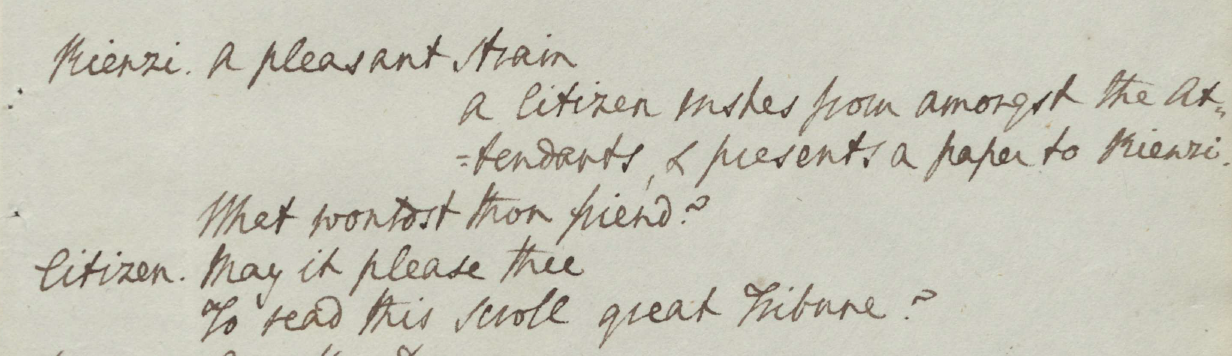 Rienzi. A pleasant strain
A Citizen rushes from amongst the At=
=tendants, & presents a paper to Rienzi
What wouldst thou friend?
Citizen. May it please thee
To read this scroll great Tribune?